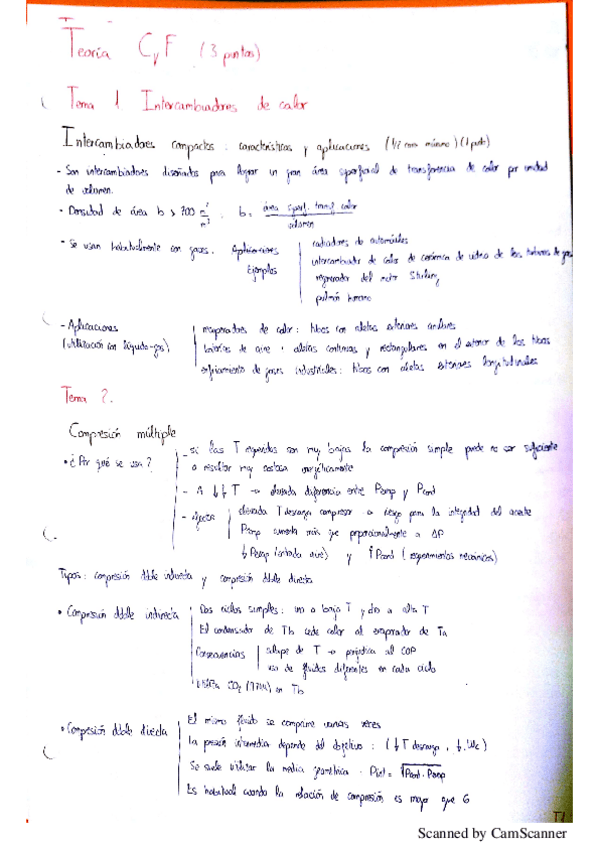 Teoría CyF (3 puntos)
Tema 1 Intercambiadores de calor
Intercambiadores compactos: características y aplicaciones (1/2 cara mínimo) (1 punto)
- Son intercambiadores diseñados para lograr un gran área superficial de transferencia de calor por unidad
de volumen.
- Densidad de área b > 700 m²/m³ b = área superf. transf. calor / volumen
- Se usan habitualmente con gases. Aplicaciones
Ejemplos
radiadores de automóviles
intercambiador de calor de cerámica de vidrio de las turbinas de gas
regenerador del motor Stirling
pulmón humano
- Aplicaciones
(utilización con líquido-gas)
evaporadores de calor: tubos con aletas externas anulares
baterías de aire: aletas continuas y rectangulares en el exterior de los tubos
enfriamiento de gases industriales: tubos con aletas externas longitudinales
Tema 2.
Compresión múltiple
• ¿Por qué se usa?
- si las T requeridas son muy bajas la compresión simple puede no ser suficiente
o resultar muy costosa energéticamente
- A ↓↓ T → elevada diferencia entre Pevap y Pcond
elevada T descarga compresor → riesgo para la integridad del aceite
aumenta más que proporcionalmente a ΔP
↓ Pevap (entrada aire) y ↑ Pcond (requerimientos mecánicos)
Tipos: compresión doble indirecta y compresión doble directa
• Compresión doble indirecta
Dos ciclos simples: uno a baja T y otro a alta T
El condensador de Tb cede calor al evaporador de Ta
Consecuencias
salto de T → perjudica al COP
uso de fluidos diferentes en cada ciclo
CO2 (R744) en Tb
• Compresión doble directa
El mismo fluido se comprime varias veces
La presión intermedia depende del objetivo: (↓ T descarga, ↓ Wc)
Se suele utilizar la media geométrica. Pint = √Pcond · Pevap
Es habitual cuando la relación de compresión es mayor que 6
Scanned by CamScanner